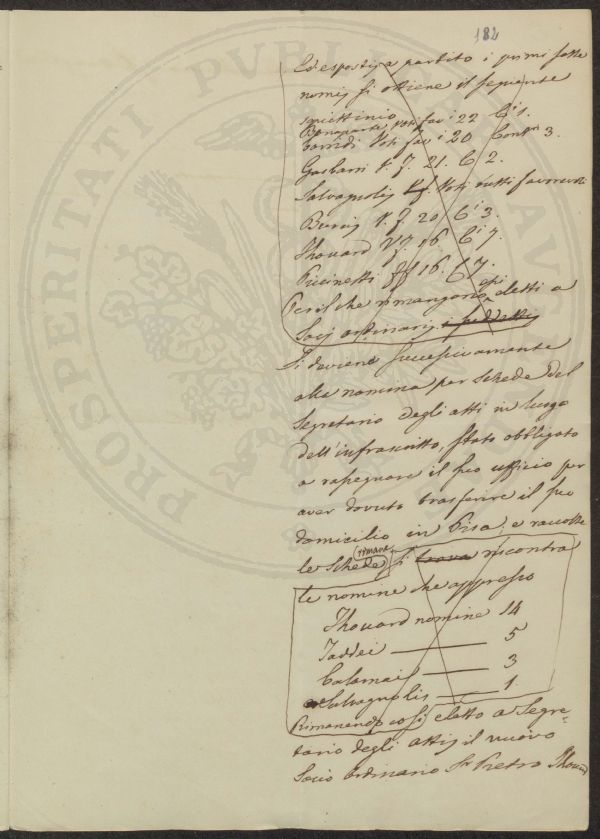 182
Ed esposti a partito i primi sette
nomi, si ottiene il seguente
squittinio
Bonaparte Voti fav.i 22 C.i 1.
Corridi Voti fav.i 20 Contr.i 3.
Gasbarri V. f. 21. C. 2.
Salvagnoli Voti tutti favorevoli
Burci V. f. 20 C.i 3.
Thouard V. f. 16 C.i 7.
Piccinetti ff 16. C. 7.
Per il che rimangono eletti a
Socj ordinarj i suddetti
Si deviene successivamente
alla nomina per schede del
Segretario degli atti in luogo
dell'infrascritto, stato obbligato
a rassegnare il suo ufficio per
aver dovuto trasferire il suo
domicilio in Pisa, e raccolte
le schede si trova riscontra
te nomine che appresso
Thouard nomine 14
Taddei — 5
Calamai — 3
Salvagnoli — 1
Rimanendo così eletto a Segre-
tario degli atti il nuovo
Socio Ordinario Sr. Pietro Thouard
PROSPERITATI PUBLICAE AUG